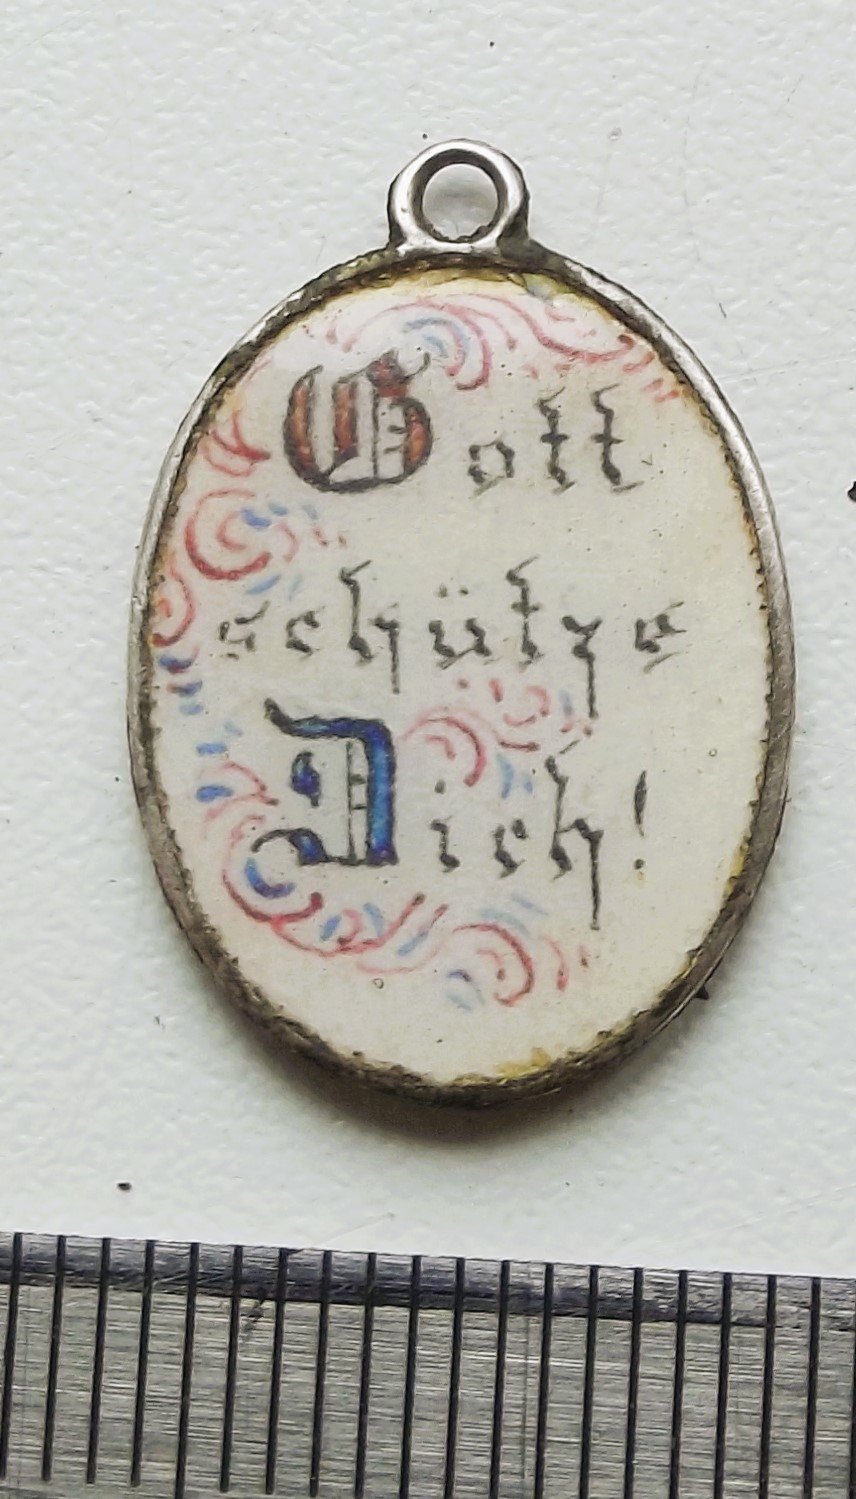 Gott
schütze
Dich!